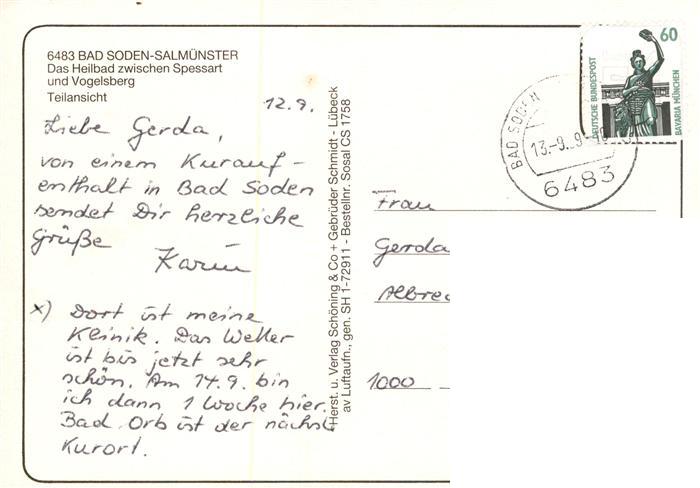 6483 BAD SODEN-SALMÜNSTER
Das Heilbad zwischen Spessart
und Vogelsberg
Teilansicht
12.9.
Liebe Gerda,
von einem Kurauf-
enthalt in Bad Soden
sendet Dir herzliche
Grüße
Karin
x) Dort ist meine
Klinik. Das Wetter
ist bis jetzt sehr
schön. Am 14.9. bin
ich dann 1 Woche hier.
Bad Orb ist der nächste
Kurort.
Herst. u. Verlag Schöning & Co + Gebrüder Schmidt - Lübeck
av Luftaufn., gen. SH 1-72911 - Bestellnr. Sosal CS 1758
60
DEUTSCHE BUNDESPOST
BAVARIA MÜNCHEN
BAD SODEN
13.-9..9
6483
Frau
Gerda
Albrec
1000